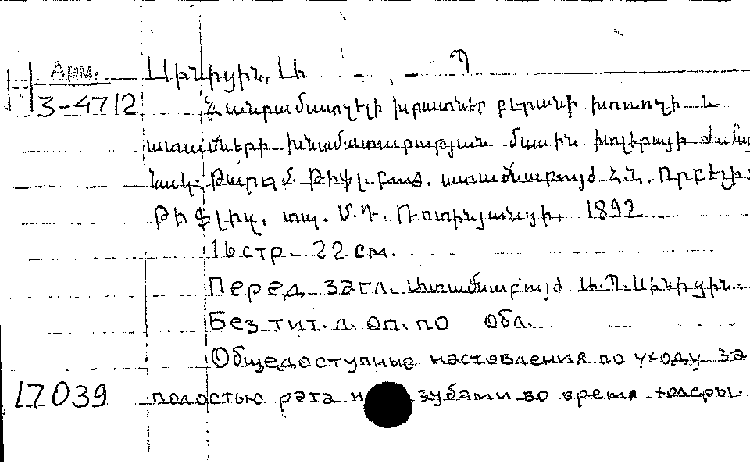 Арм. Սինիցին, Ա Պ
3-4712 Հանրամատչելի խրատներ բերանի խոռոչի և
ատամների խնամատարության մասին խոլերայի ժամա
նակ. Թարգմ. Թիֆլ. ատամնաբույժ
Թիֆլիս, տպ. Մ. Դ. Ռոտինյանցի, 1892
16 стр. 22 см.
Перед загл. ատամնաբույժ Ա. Պ. Սինիցին.
Без тит. л. оп. по обл.
Общедоступные наставления по уходу за
17039 полостью рта и зубами во время холеры.